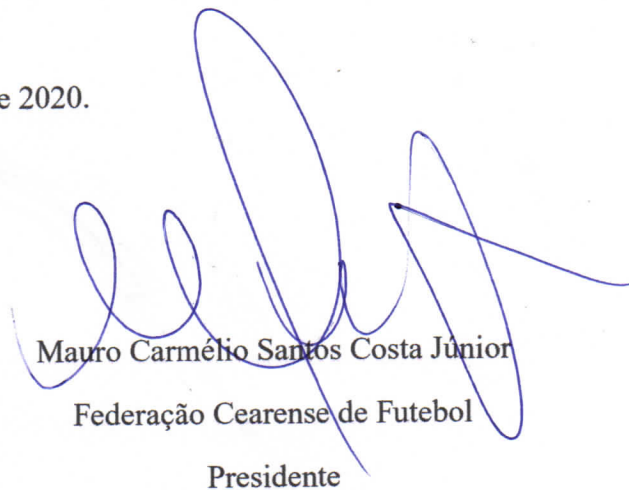 e 2020.
Mauro Carmélio Santos Costa Júnior
Federação Cearense de Futebol
Presidente